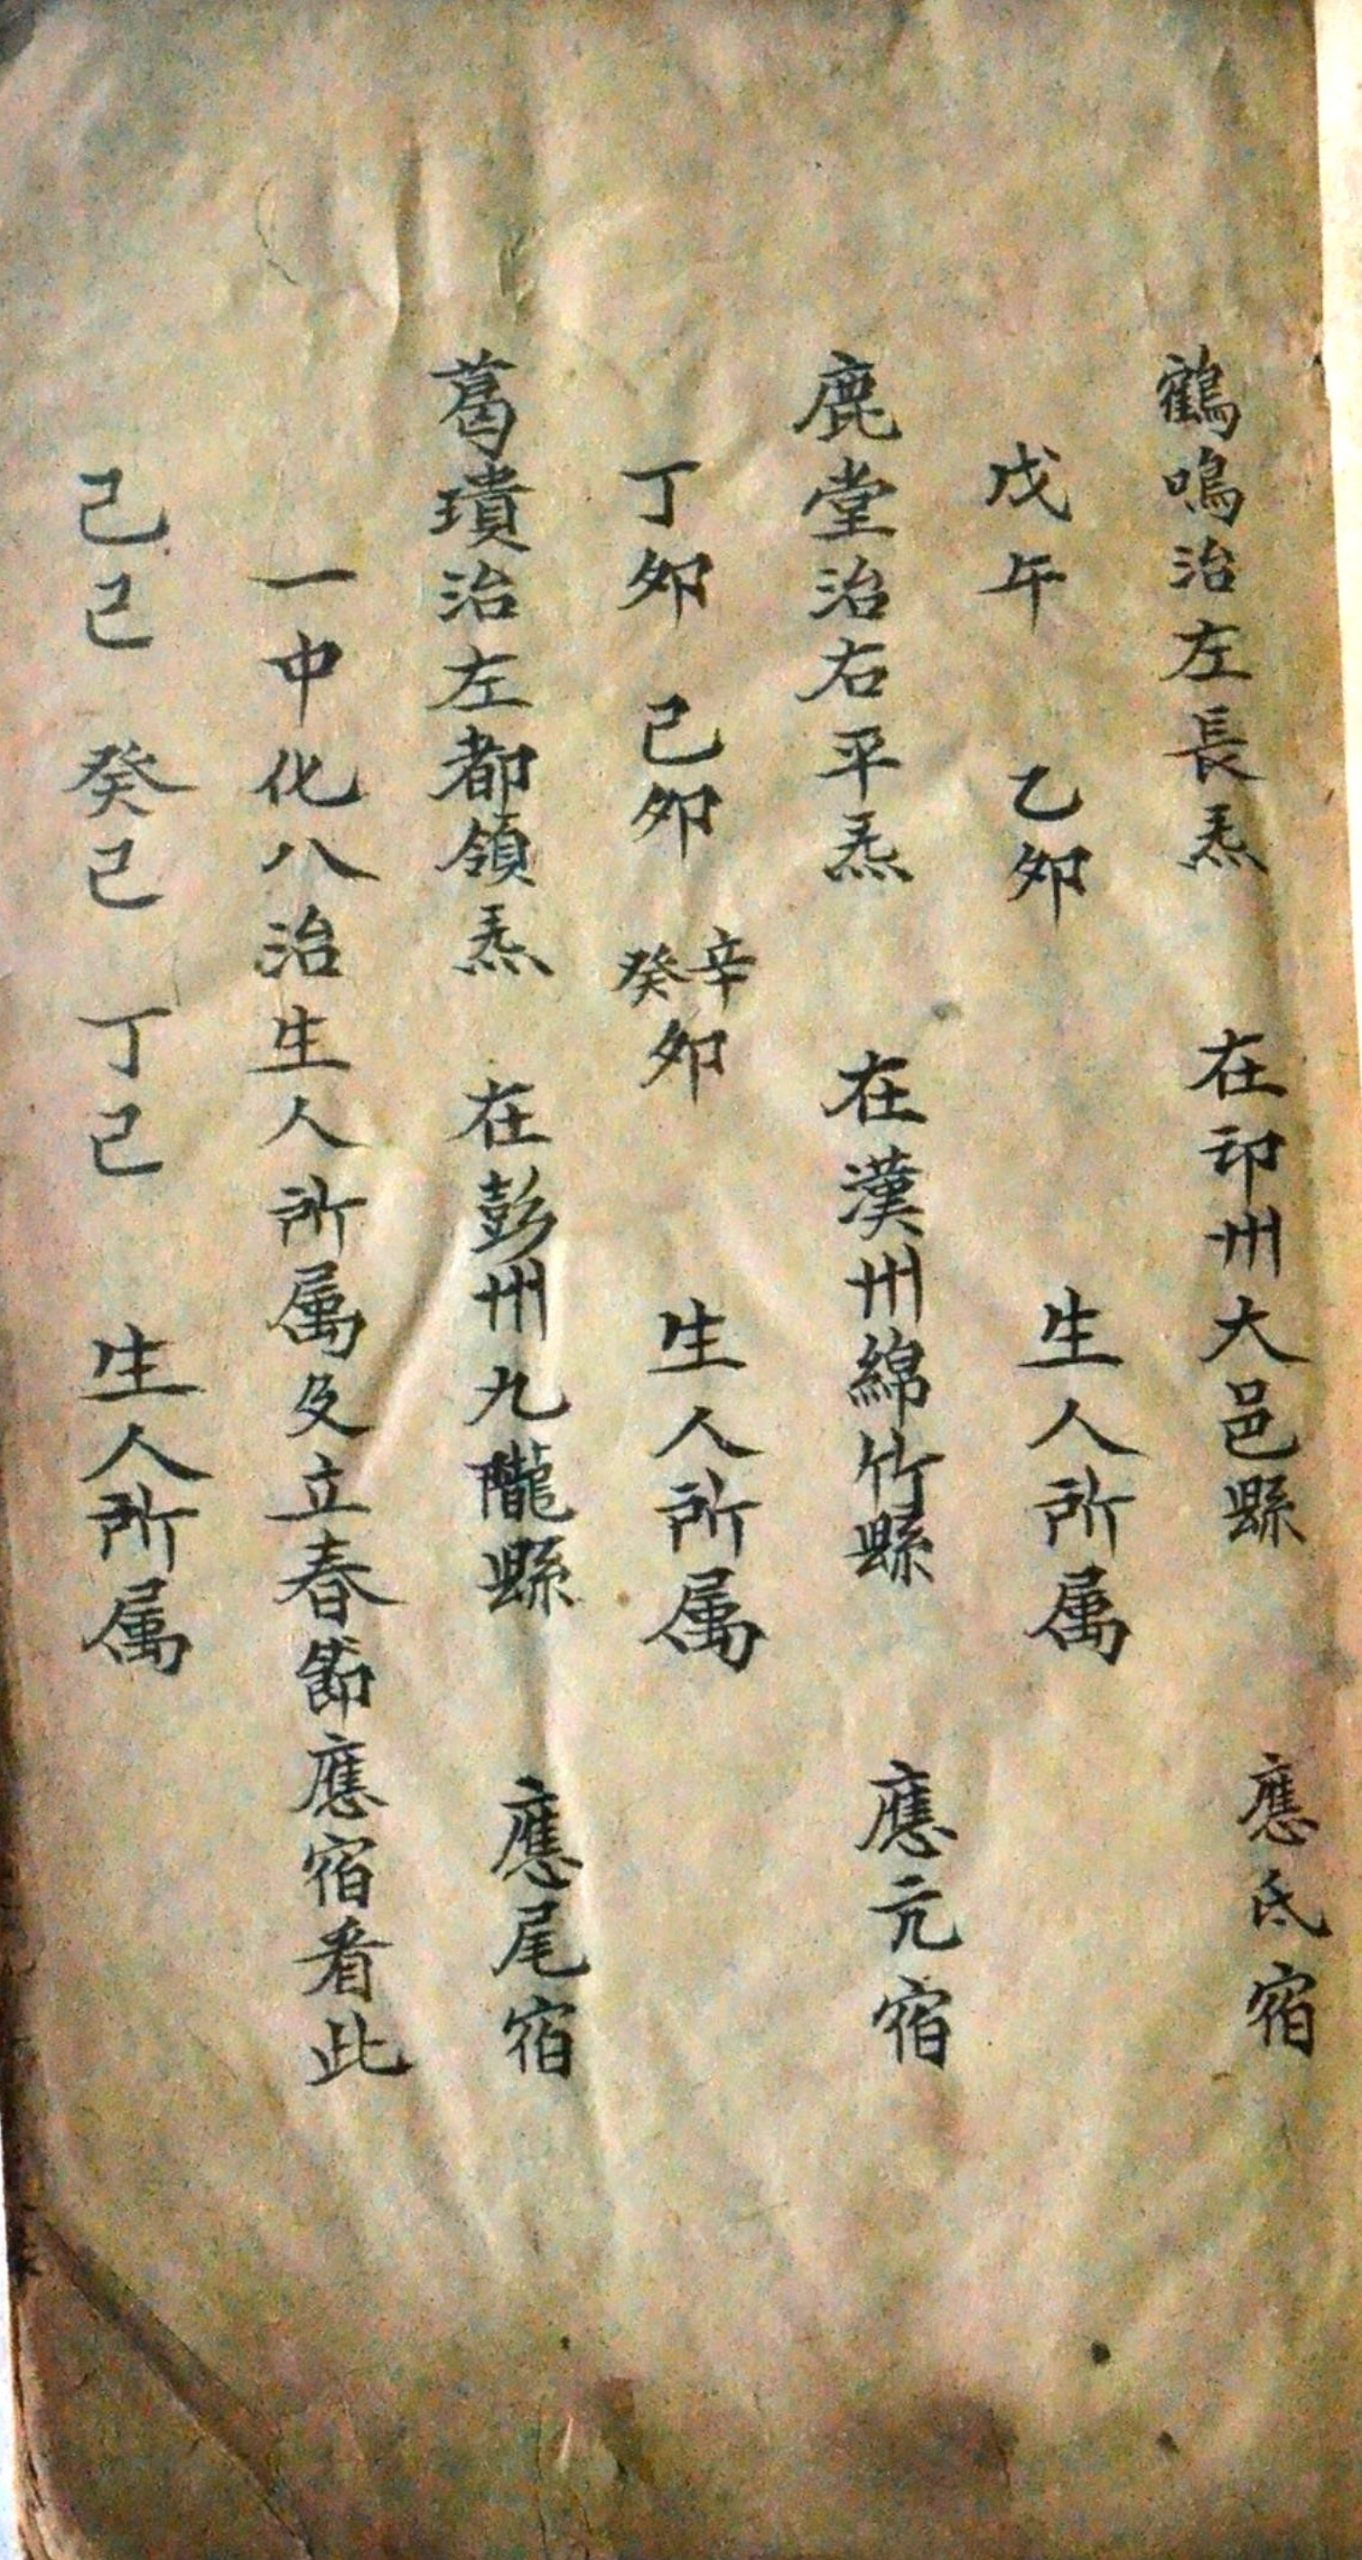 鶴鳴治左長炁　在卭州大邑縣　應氐宿
戊午　乙卯　生人所属
鹿堂治右平炁　在漢州綿竹縣　應亢宿
丁卯　己卯　辛癸卯　生人所属
葛璝治左都領炁　在彭州九隴縣　應尾宿
一中化八治生人所属及立春節應宿看此
己巳　癸巳　丁巳　生人所属